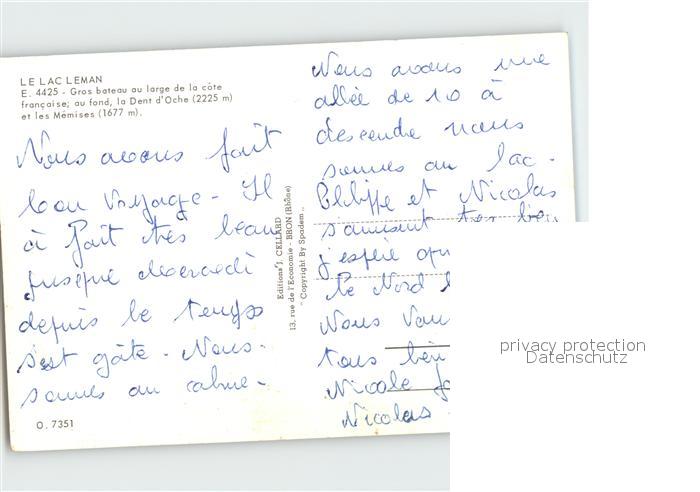 LE LAC LEMAN
E. 4425 - Gros bateau au large de la côte
française; au fond, la Dent d'Oche (2225 m)
et les Mémises (1677 m).
Nous avons fait
bon voyage - Il
à fait très beau
jusque Mercredi
depuis le temps
s'est gâte - Nous
sommes au calme -
O. 7351
Editions J. CELLARD
13, rue de l'Economie - BRON (Rhône)
" Copyright By Spadem "
Nous avons une
allée de 10 à
descendre nous
sommes au lac -
Philippe et Nicolas
s'amusent très bien
j'espère
le Nord
Nous
tous bien
Nicole
Nicolas
privacy protection
Datenschutz